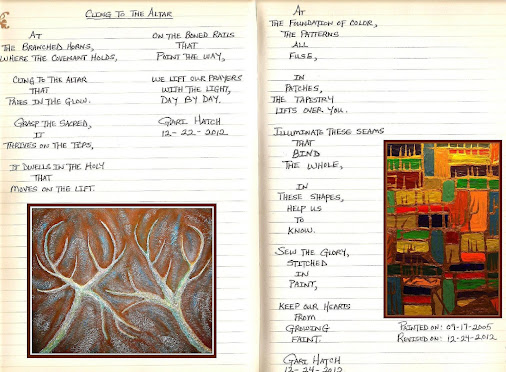 Cling To The Altar
At
The Branched Horns,
Where the Covenant Holds,
Cling To the Altar
That
Fades in the Glow.
Grasp the Sacred,
It
Thrives on the Tips,
It Dwells in the Holy
That
Moves on the Lift.
On the Boned Rails
That
Point the Way,
We Lift our Prayers
With the Light,
Day By Day.
Gari Hatch
12-22-2012
At
The Foundation of Color,
The Patterns
All
Fuse,
In
Patches,
The Tapestry
Lifts over You.
Illuminate These Seams
That
Bind
The Whole,
In
These Shapes,
Help us
To
Know.
Sew the Glory,
Stitched
In
Paint,
Keep our Hearts
From
Growing
Faint.
Gari Hatch
12-24-2012
Printed on: 09-17-2005
Revised on: 12-24-2012